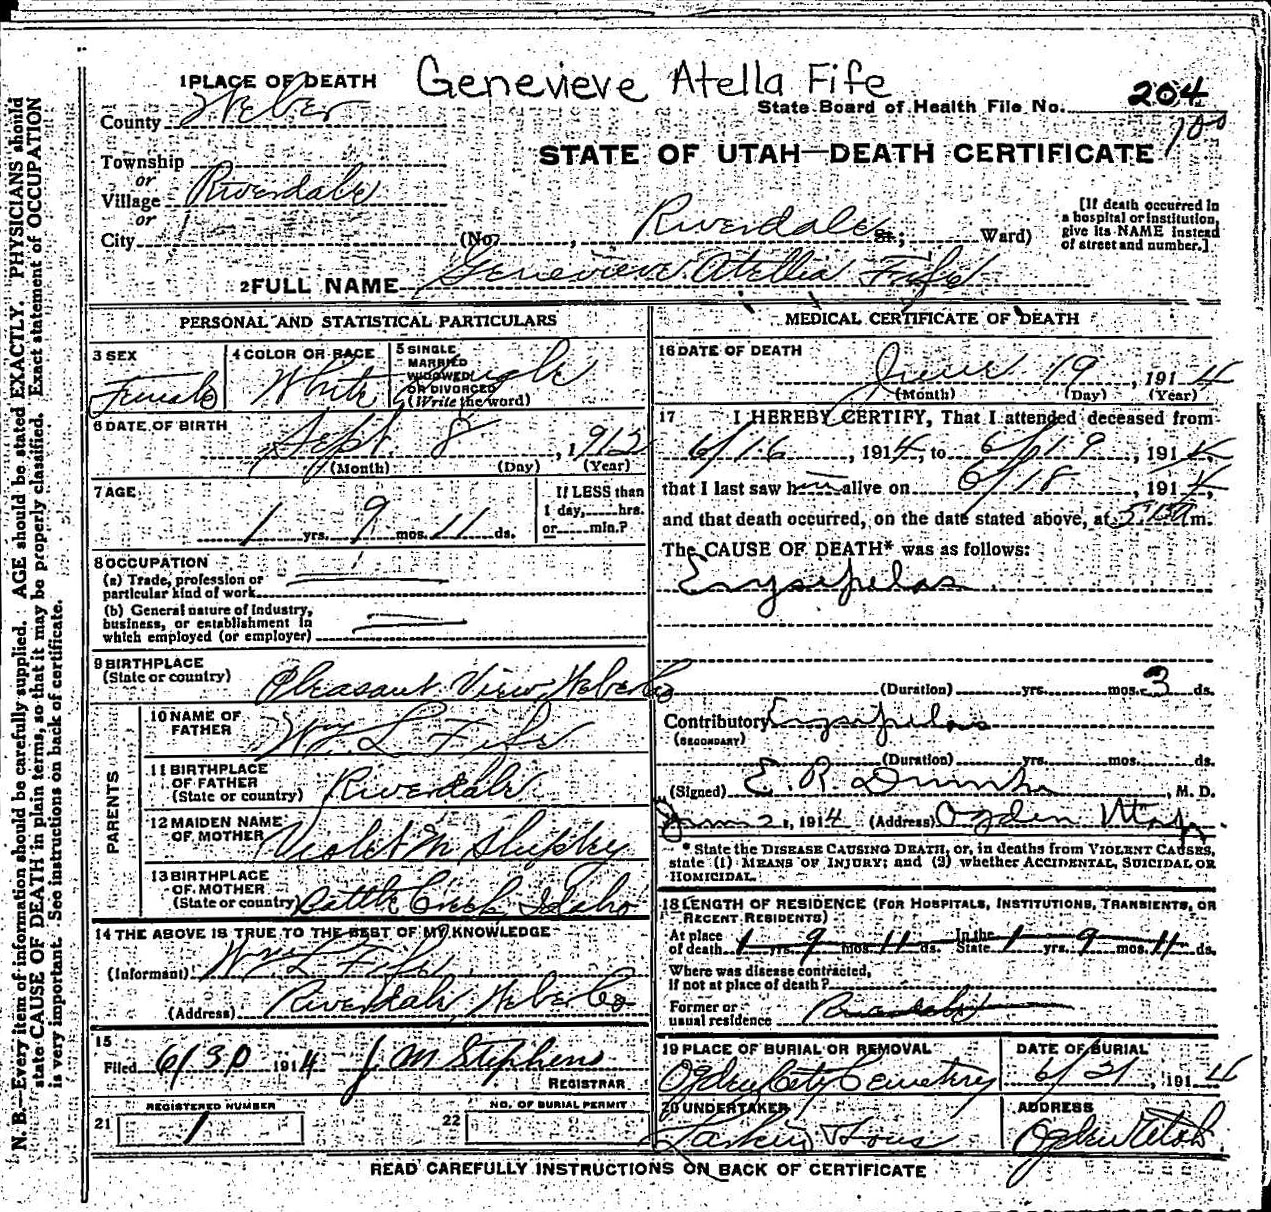 1 PLACE OF DEATH Genevieve Atella Fife
State Board of Health File No. 204
County Weber 100
STATE OF UTAH—DEATH CERTIFICATE
Township
or
Village Riverdale
or
City (No. , Riverdale St.; Ward)
[If death occurred in a hospital or institution, give its NAME instead of street and number.]
2 FULL NAME Genevieve Atellia Fife
PERSONAL AND STATISTICAL PARTICULARS
3 SEX
Female
4 COLOR OR RACE
White
5 SINGLE
MARRIED
WIDOWED
OR DIVORCED
(Write the word)
Single
6 DATE OF BIRTH
Sept. 8, 1912
(Month) (Day) (Year)
7 AGE
1 yrs. 9 mos. 11 ds.
If LESS than
1 day, hrs.
or min.?
8 OCCUPATION
(a) Trade, profession or
particular kind of work
(b) General nature of industry,
business, or establishment in
which employed (or employer)
9 BIRTHPLACE
(State or country) Pleasant View, Weber Co
PARENTS
10 NAME OF
FATHER Wm L Fife
11 BIRTHPLACE
OF FATHER
(State or country) Riverdale
12 MAIDEN NAME
OF MOTHER Violet M
13 BIRTHPLACE
OF MOTHER
(State or country) Battle Creek, Idaho
14 THE ABOVE IS TRUE TO THE BEST OF MY KNOWLEDGE
(Informant) Wm L Fife
(Address) Riverdale, Weber Co
15
Filed 6/30 1914 J M Stephens
REGISTRAR
REGISTERED NUMBER
21 1
NO. OF BURIAL PERMIT
22
MEDICAL CERTIFICATE OF DEATH
16 DATE OF DEATH
June 19, 1914
(Month) (Day) (Year)
17 I HEREBY CERTIFY, That I attended deceased from
6/16, 1914, to 6/19, 1914,
that I last saw h alive on 6/18, 1914,
and that death occurred, on the date stated above, at m.
The CAUSE OF DEATH* was as follows:
Erysipelas
(Duration) yrs. mos. 3 ds.
Contributory Erysipelas
(SECONDARY)
(Duration) yrs. mos. ds.
(Signed) E. R. , M. D.
, 1914 (Address) Ogden Utah
* State the DISEASE CAUSING DEATH, or, in deaths from VIOLENT CAUSES,
state (1) MEANS OF INJURY; and (2) whether ACCIDENTAL, SUICIDAL OR
HOMICIDAL.
18 LENGTH OF RESIDENCE (FOR HOSPITALS, INSTITUTIONS, TRANSIENTS, OR
RECENT RESIDENTS)
At place
of death 1 yrs. 9 mos. 11 ds. In the State 1 yrs. 9 mos. 11 ds.
Where was disease contracted,
if not at place of death?
Former or
usual residence
19 PLACE OF BURIAL OR REMOVAL
Ogden City Cemetery
DATE OF BURIAL
6/21, 1914
20 UNDERTAKER
Larkin & Sons
ADDRESS
Ogden Utah
READ CAREFULLY INSTRUCTIONS ON BACK OF CERTIFICATE
N. B.—Every item of information should be carefully supplied. AGE should be stated EXACTLY. PHYSICIANS should
state CAUSE OF DEATH in plain terms, so that it may be properly classified. Exact statement of OCCUPATION
is very important. See instructions on back of certificate.